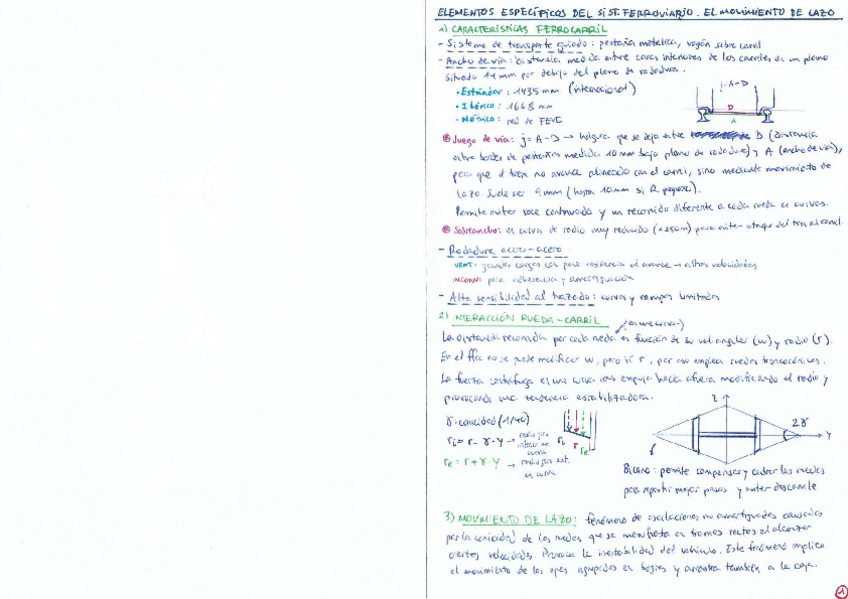 ELEMENTOS ESPECÍFICOS DEL SIST. FERROVIARIO. EL MOVIMIENTO DE LAZO
1) CARACTERÍSTICAS FERROCARRIL
- Sistema de transporte guiado: pestañas metálicas, vagón sobre carril
- Ancho de vía: distancia medida entre caras interiores de los carriles en un plano
situado 14 mm por debajo del plano de rodadura.
• Estándar: 1435 mm (internacional)
• Ibérico: 1668 mm
• Métrico: red de FEVE
j = A - D
D
A
Juego de vía: j = A - D → holgura que se deja entre D (distancia
entre bordes de pestañas medida 10 mm bajo plano de rodadura) y A (ancho de vía),
para que el tren no avance alineado con el carril, sino mediante movimiento de
lazo. Suele ser 9 mm (hasta 10 mm si R pequeños).
Permite evitar roce continuado y un recorrido diferente a cada rueda en curvas.
Sobreancho: en curvas de radio muy reducido para evitar ataque del tren al carril.
- Rodadura acero-acero
VENT: grandes cargas con poca resistencia al avance → altas velocidades
INCONV: poca adherencia y amortiguación
- Alta sensibilidad al trazado: curvas y rampas limitadas
2) INTERACCIÓN RUEDA-CARRIL
(en una curva)
La distancia recorrida por cada rueda es función de su vel. angular (w) y radio (r).
En el ffcc no se puede modificar w, pero sí r, por eso emplea ruedas troncocónicas.
La fuerza centrífuga en una curva empuja hacia afuera modificando el radio y
provocando una tendencia estabilizadora.
γ: conicidad (1/40)
ri = r - γ·y → radio por interior en curva
re = r + γ·y → radio por ext. en curva
ri r re
z
y
2γ
Bicono: permite compensar y centrar las ruedas
para repartir mejor pesos y evitar descarrile
3) MOVIMIENTO DE LAZO: fenómeno de oscilaciones no amortiguadas causadas
por la conicidad de las ruedas que se manifiesta en tramos rectos al alcanzar
ciertas velocidades. Provoca la inestabilidad del vehículo. Este fenómeno implica
el movimiento de los ejes agrupados en bogies y arrastra también a la caja.
1